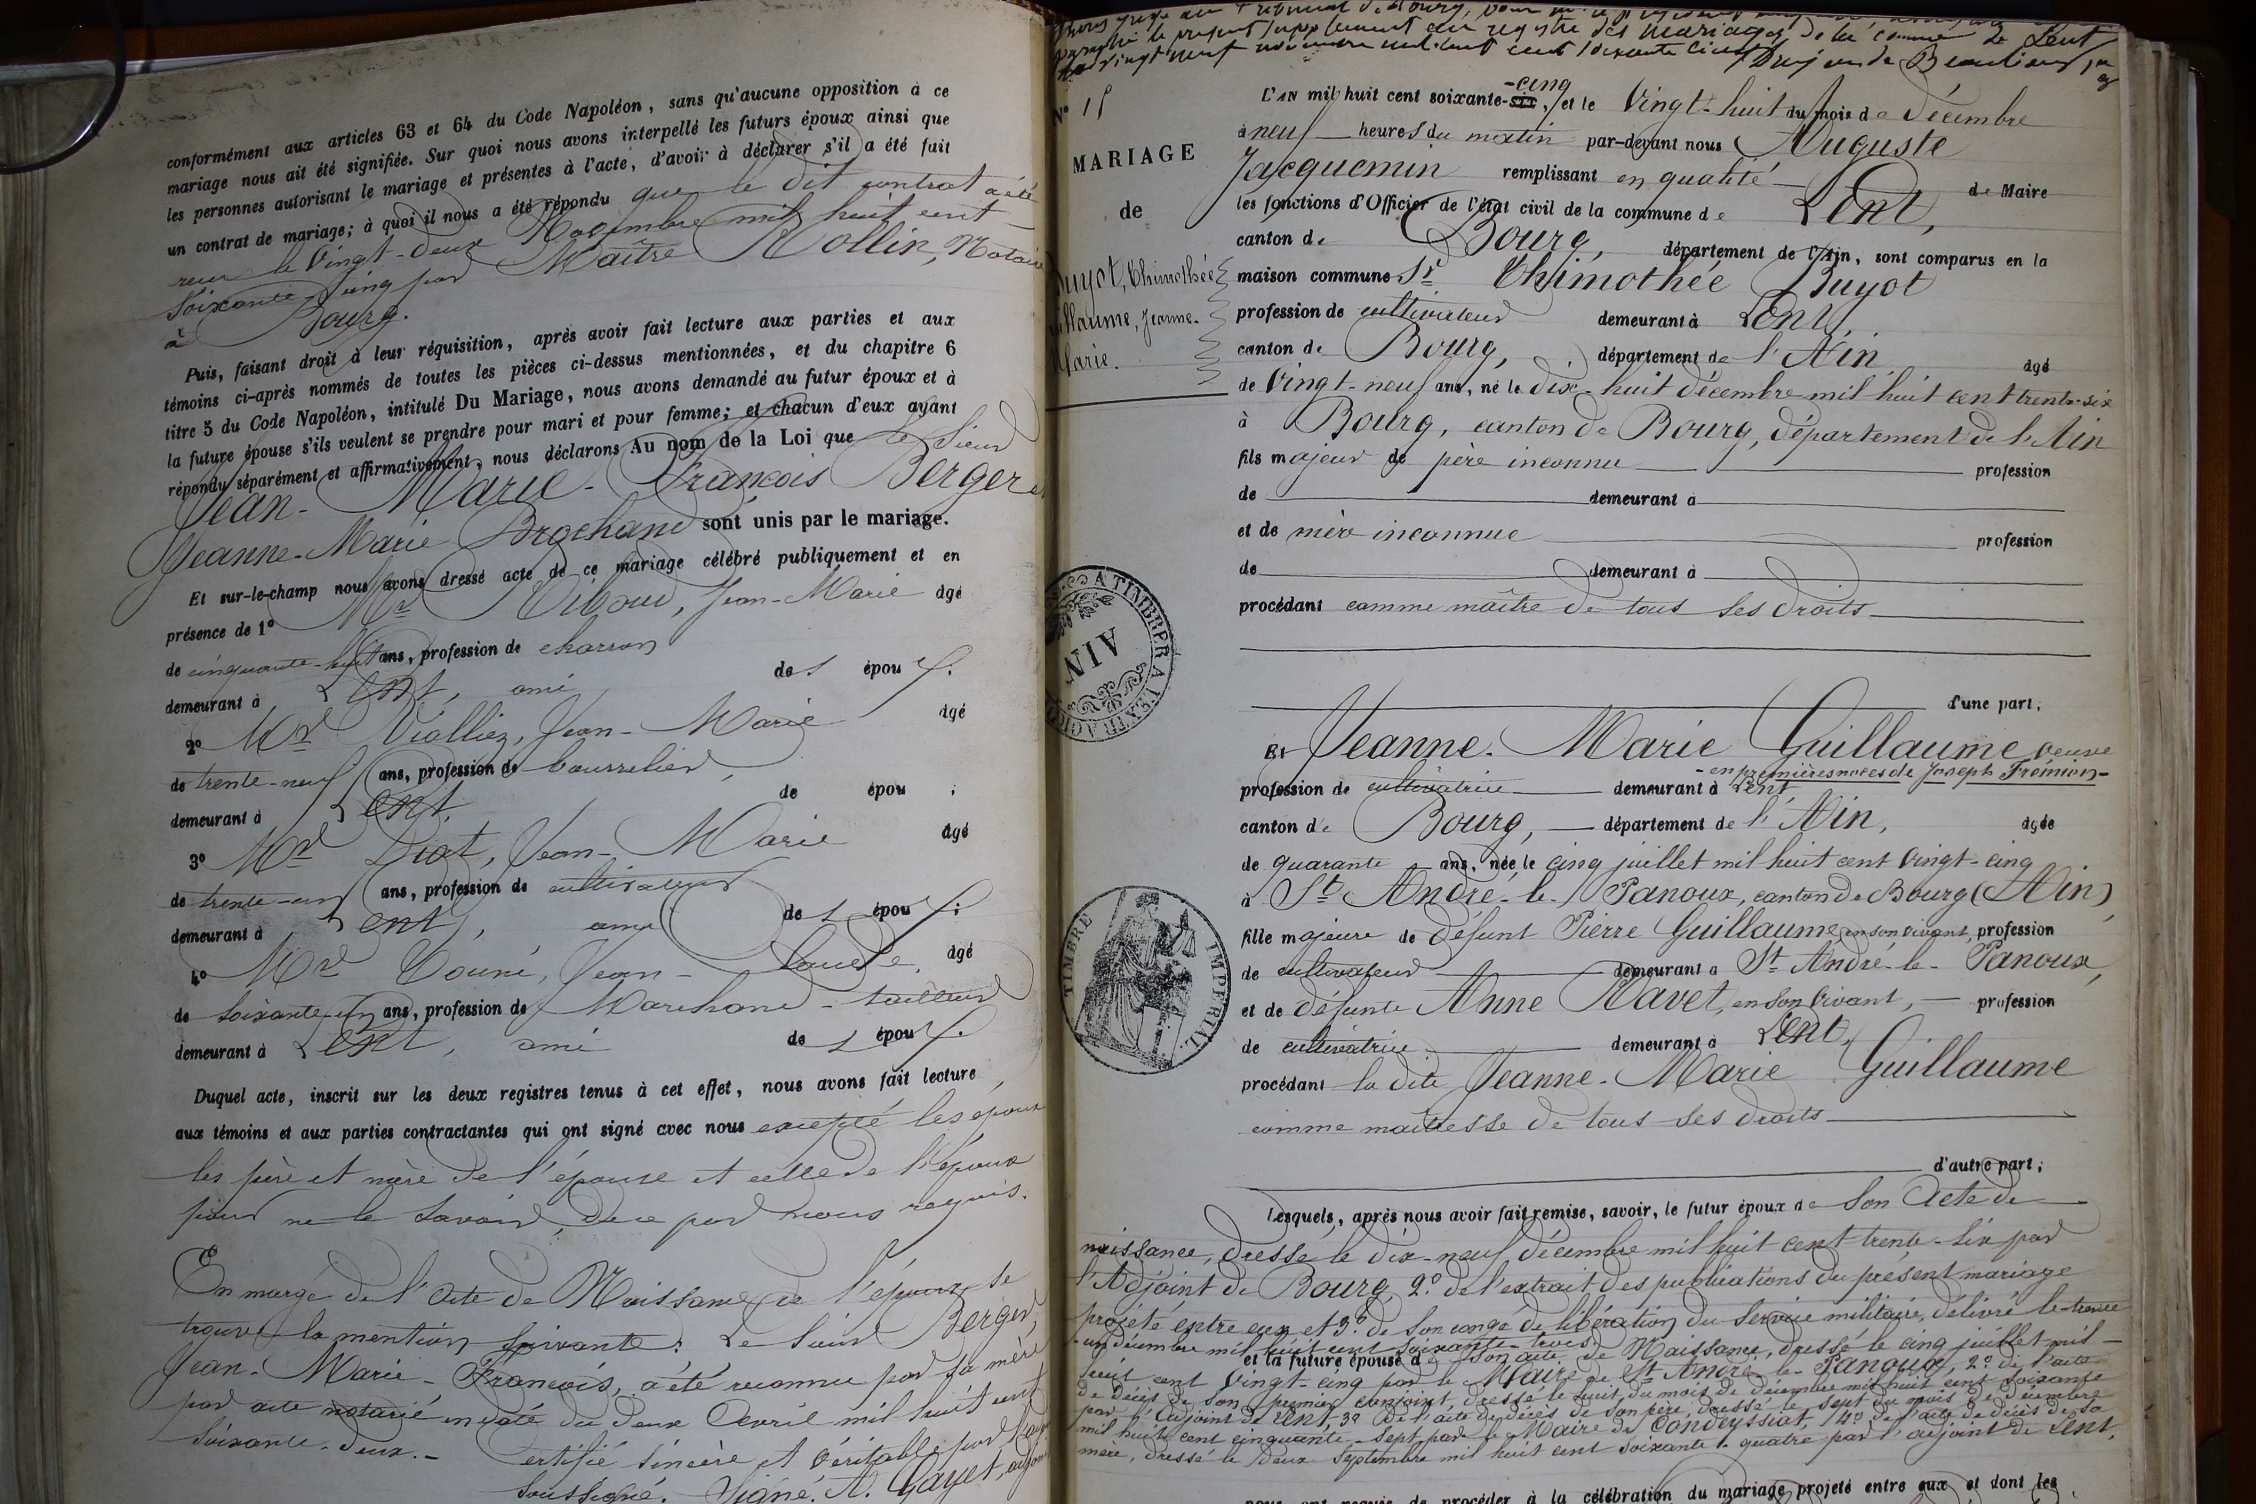 conformément aux articles 63 et 64 du Code Napoléon, sans qu'aucune opposition à ce
mariage nous ait été signifiée. Sur quoi nous avons interpellé les futurs époux ainsi que
les personnes autorisant le mariage et présentes à l'acte, d'avoir à déclarer s'il a été fait
un contrat de mariage; à quoi il nous a été répondu que le dit contrat a été
reçu le vingt-deux Novembre mil huit cent
soixante cinq par Maître Rollin, Notaire
à Bourg.
Puis, faisant droit à leur réquisition, après avoir fait lecture aux parties et aux
témoins ci-après nommés de toutes les pièces ci-dessus mentionnées, et du chapitre 6
titre 5 du Code Napoléon, intitulé Du Mariage, nous avons demandé au futur époux et à
la future épouse s'ils veulent se prendre pour mari et pour femme; et chacun d'eux ayant
répondu séparément et affirmativement, nous déclarons Au nom de la Loi que le Sieur
Jean-Marie-François Berger et
Jeanne-Marie Brochand sont unis par le mariage.
Et sur-le-champ nous avons dressé acte de ce mariage célébré publiquement et en
présence de 1° Mr Riboud, Jean-Marie âgé
de cinquante-huit ans, profession de charron
demeurant à Lent, ami de l épou x.
2° Mr Violliez, Jean-Marie âgé
de trente-neuf ans, profession de bourrelier,
demeurant à Lent. de épou ;
3° Mr Diot, Jean-Marie âgé
de trente-un ans, profession de cultivateur
demeurant à Lent, ami de l épou x;
4° Mr Jean-Claude, âgé
de soixante-un ans, profession de Marchand-tailleur
demeurant à Lent, ami de l épou x.
Duquel acte, inscrit sur les deux registres tenus à cet effet, nous avons fait lecture
aux témoins et aux parties contractantes qui ont signé avec nous excepté les époux
les père et mère de l'épouse et celle de l'époux
pour ne le savoir, de ce par nous requis.
En marge de l'acte de Naissance de l'époux se
trouve la mention suivante: Le Sieur Berger,
Jean-Marie-François, a été reconnu par sa mère
par acte notarié en date du deux Avril mil huit cent
soixante-deux.- Certifié sincère et véritable par Nous
soussigné. Signé: A. Gayet, adjoint
le présent supplément au registre des mariages de la commune de Lent
vingt neuf novembre mil huit cent soixante cinq
N° 15
MARIAGE
de
Buyot, Thimothée
Guillaume, Jeanne-
Marie.
-cinq
L'AN mil huit cent soixante-six, et le Vingt-huit du mois de décembre
à neuf heures du matin par-devant nous Auguste
Jacquemin remplissant en qualité de Maire
les fonctions d'Officier de l'état civil de la commune de Lent,
canton de Bourg, département de l'Ain, sont comparus en la
maison commune Sr Thimothée Buyot
profession de cultivateur demeurant à Lent,
canton de Bourg, département de l'Ain âgé
de Vingt-neuf ans, né le dix-huit décembre mil huit cent trente-six
à Bourg, canton de Bourg, département de l'Ain
fils majeur de père inconnu profession
de demeurant à
et de mère inconnue profession
de demeurant à
procédant comme maître de tous ses droits
d'une part;
A TIMBRER A L'EXTRAORD
AIN
Et Jeanne-Marie Guillaume veuve
-en premières noces de Joseph Frémion-
profession de cultivatrice demeurant à Lent
canton de Bourg, département de l'Ain, âgée
de quarante ans, née le cinq juillet mil huit cent Vingt-cinq
à St André-le-Panoux, canton de Bourg (Ain)
fille majeure de défunt Pierre Guillaume, en son vivant, profession
de cultivateur demeurant à St André-le-Panoux,
et de défunte Anne Ravet, en son Vivant, profession
de cultivatrice demeurant à Lent,
procédant la dite Jeanne-Marie Guillaume
comme maîtresse de tous ses droits
d'autre part;
TIMBRE IMPERIAL
Lesquels, après nous avoir fait remise, savoir, le futur époux de son Acte de
naissance, dressé le dix-neuf décembre mil huit cent trente-six par
l'Adjoint de Bourg, 2° de l'extrait des publications du présent mariage
projeté entre eux et 3° de son congé de libération du service militaire, délivré le trente
-un décembre mil huit cent soixante-trois
et la future épouse de son acte de Naissance, dressé le cinq juillet mil
huit cent Vingt-cinq par le Maire de St André-le-Panoux, 2° de l'acte
de décès de son premier conjoint, dressé le huit du mois de décembre mil huit cent soixante
par l'adjoint de Lent, 3° de l'acte de décès de son père, dressé le sept du mois de décembre
mil huit cent cinquante-sept par le Maire de Condeyssiat, 4° de l'acte de décès de sa
mère, dressé le deux Septembre mil huit cent soixante-quatre par l'adjoint de Lent,
nous ont requis de procéder à la célébration du mariage projeté entre eux et dont les